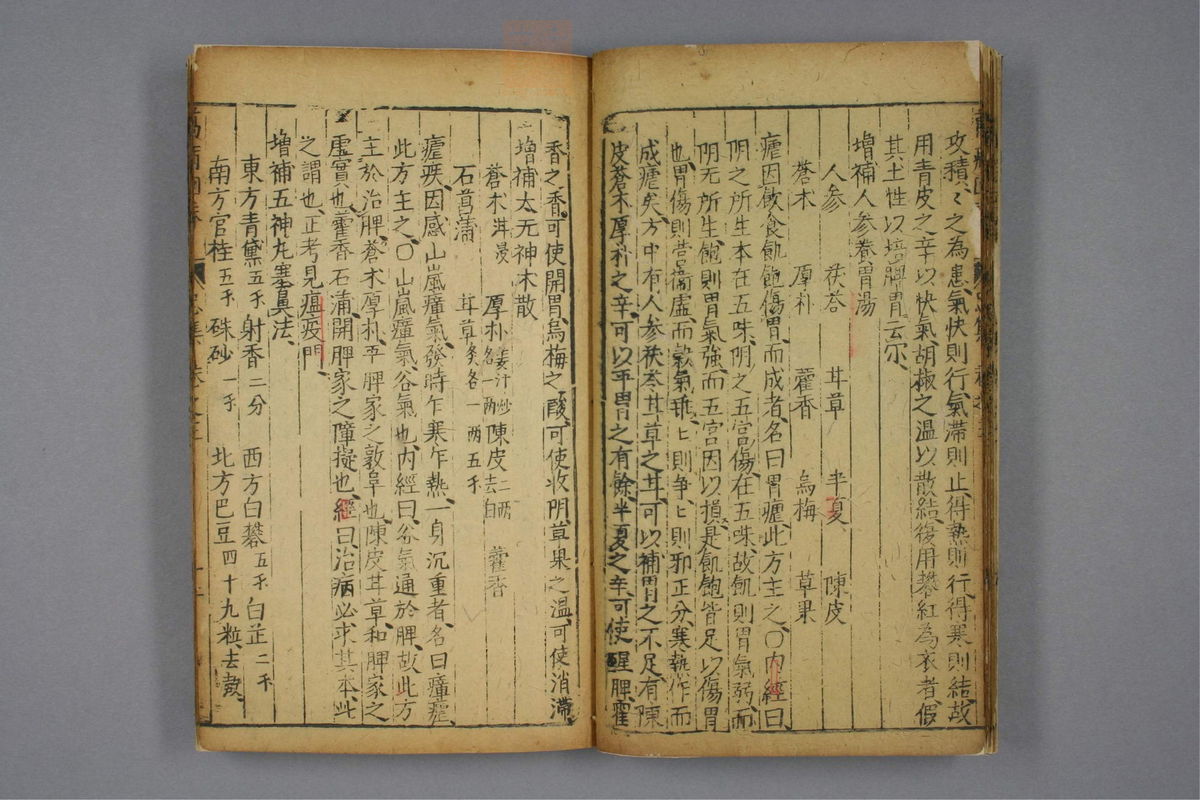 攻積〻之為患氣快則行氣滯則止得熱則行得寒則結故
用青皮之辛以快氣胡椒之溫以散結後用礬紅為衣者假
其土性以培脾胃云尒
增補人参養胃湯
人参 茯苓 甘草 半夏 陳皮
蒼朮 厚朴 藿香 烏梅 草果
瘧因飲食飢飽傷胃而成者名曰胃瘧此方主之〇内經曰
阴之所生本在五味阴之五宮傷在五味故飢則胃氣弱而
阴无所生飽則胃氣強而五宮因以損是飢飽皆足以傷胃
也胃傷則营衛虛而穀氣乖〻則争〻則邪正分寒熱作而
成瘧矣方中有人参茯苓甘草之甘可以補胃之不足有陳
皮蒼朮厚朴之辛可以平胃之有餘半夏之辛可使醒脾藿
香之香可使開胃烏梅之酸可使收阴草果之温可使消滯
增補太无神朮散
蒼朮泔浸 厚朴姜汁炒各一两 陳皮去白二两 藿香
石菖蒲 甘草炙各一两五千
瘧疾因感山嵐瘴氣發時乍寒乍熱一身沉重者名曰瘴瘧
此方主之〇山嵐瘴氣谷氣也内經曰谷氣通於脾故此方
主於治脾蒼朮厚朴平脾家之敦阜也陳皮甘草和脾家之
虛實也藿香石蒲開脾家之障擬也經曰治病必求其本此
之謂也正考見瘟疫門
增補五神丸塞鼻法
東方青黛五千 射香二分 西方白礬五千 白芷二千
南方官桂五千 硃砂一千 北方巴豆四十九粒去殼